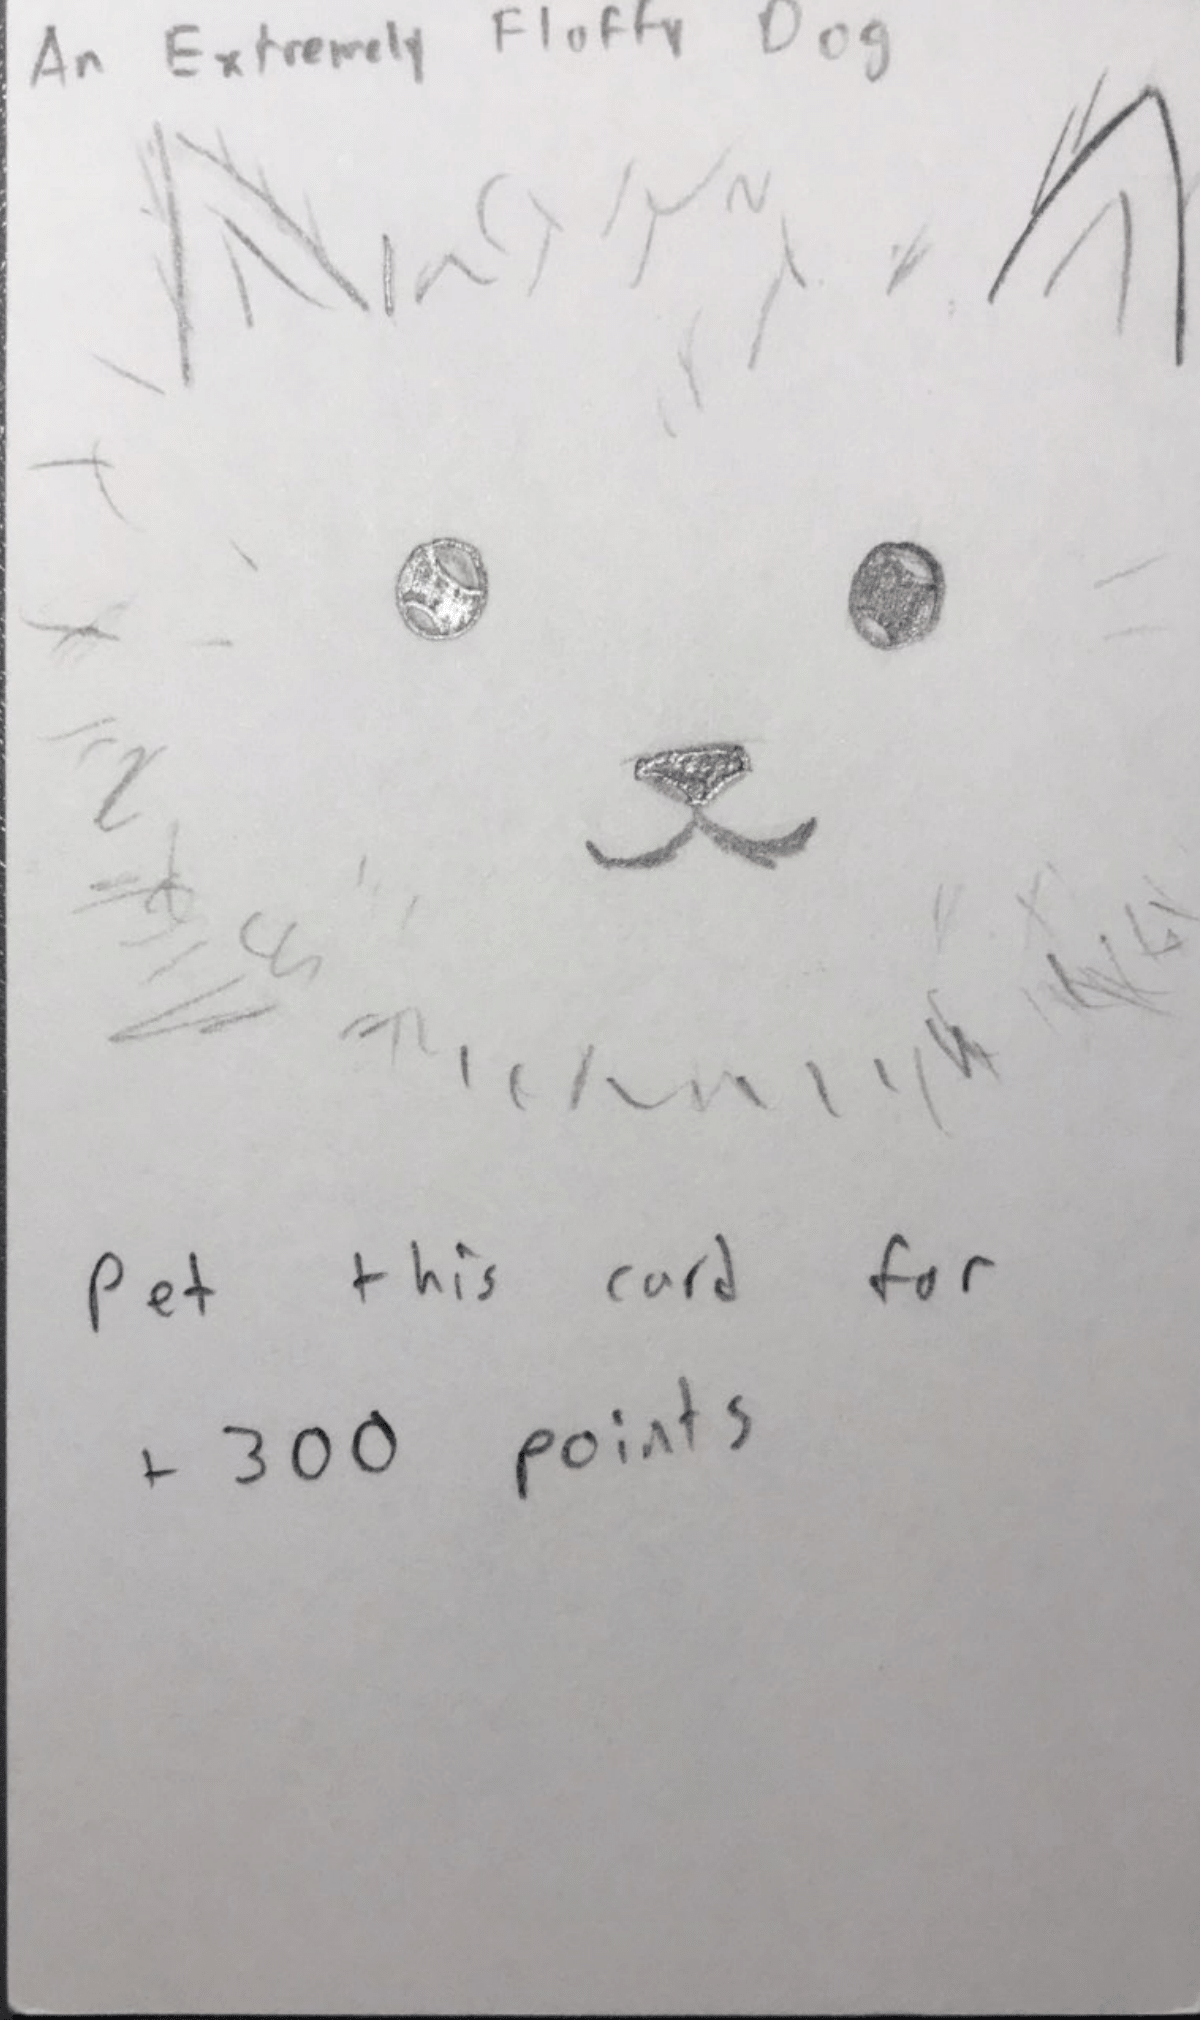 An Extremely Fluffy Dog
Pet this card for
+300 points